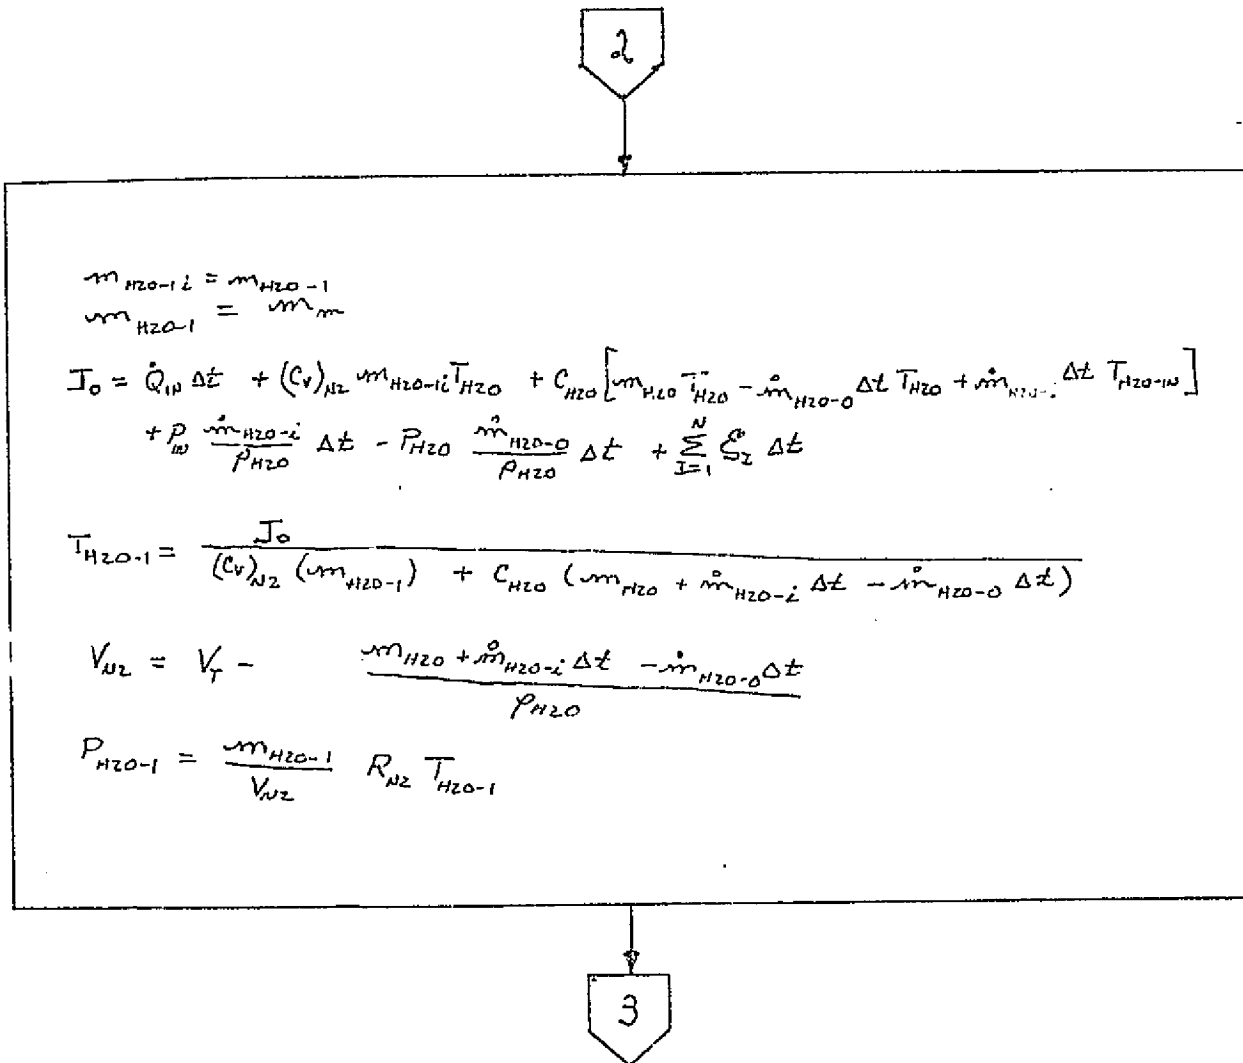 2
m_{H2O-1i} = m_{H2O-1}
m_{H2O-1} = m_m
J_O = Q̇_{IN} Δt + (C_V)_{N2} m_{H2O-1i} T_{H2O} + C_{H2O} [m_{H2O} T_{H2O} - ṁ_{H2O-O} Δt T_{H2O} + ṁ_{H2O-i} Δt T_{H2O-IN}]
+ P_{IN} ṁ_{H2O-i}/ρ_{H2O} Δt - P_{H2O} ṁ_{H2O-O}/ρ_{H2O} Δt + Σ_{I=1}^{N} ξ_I Δt
T_{H2O-1} = J_O / ((C_V)_{N2} (m_{H2O-1}) + C_{H2O} (m_{H2O} + ṁ_{H2O-i} Δt - ṁ_{H2O-O} Δt))
V_{N2} = V_T - (m_{H2O} + ṁ_{H2O-i} Δt - ṁ_{H2O-O} Δt)/ρ_{H2O}
P_{H2O-1} = m_{H2O-1}/V_{N2} R_{N2} T_{H2O-1}
3